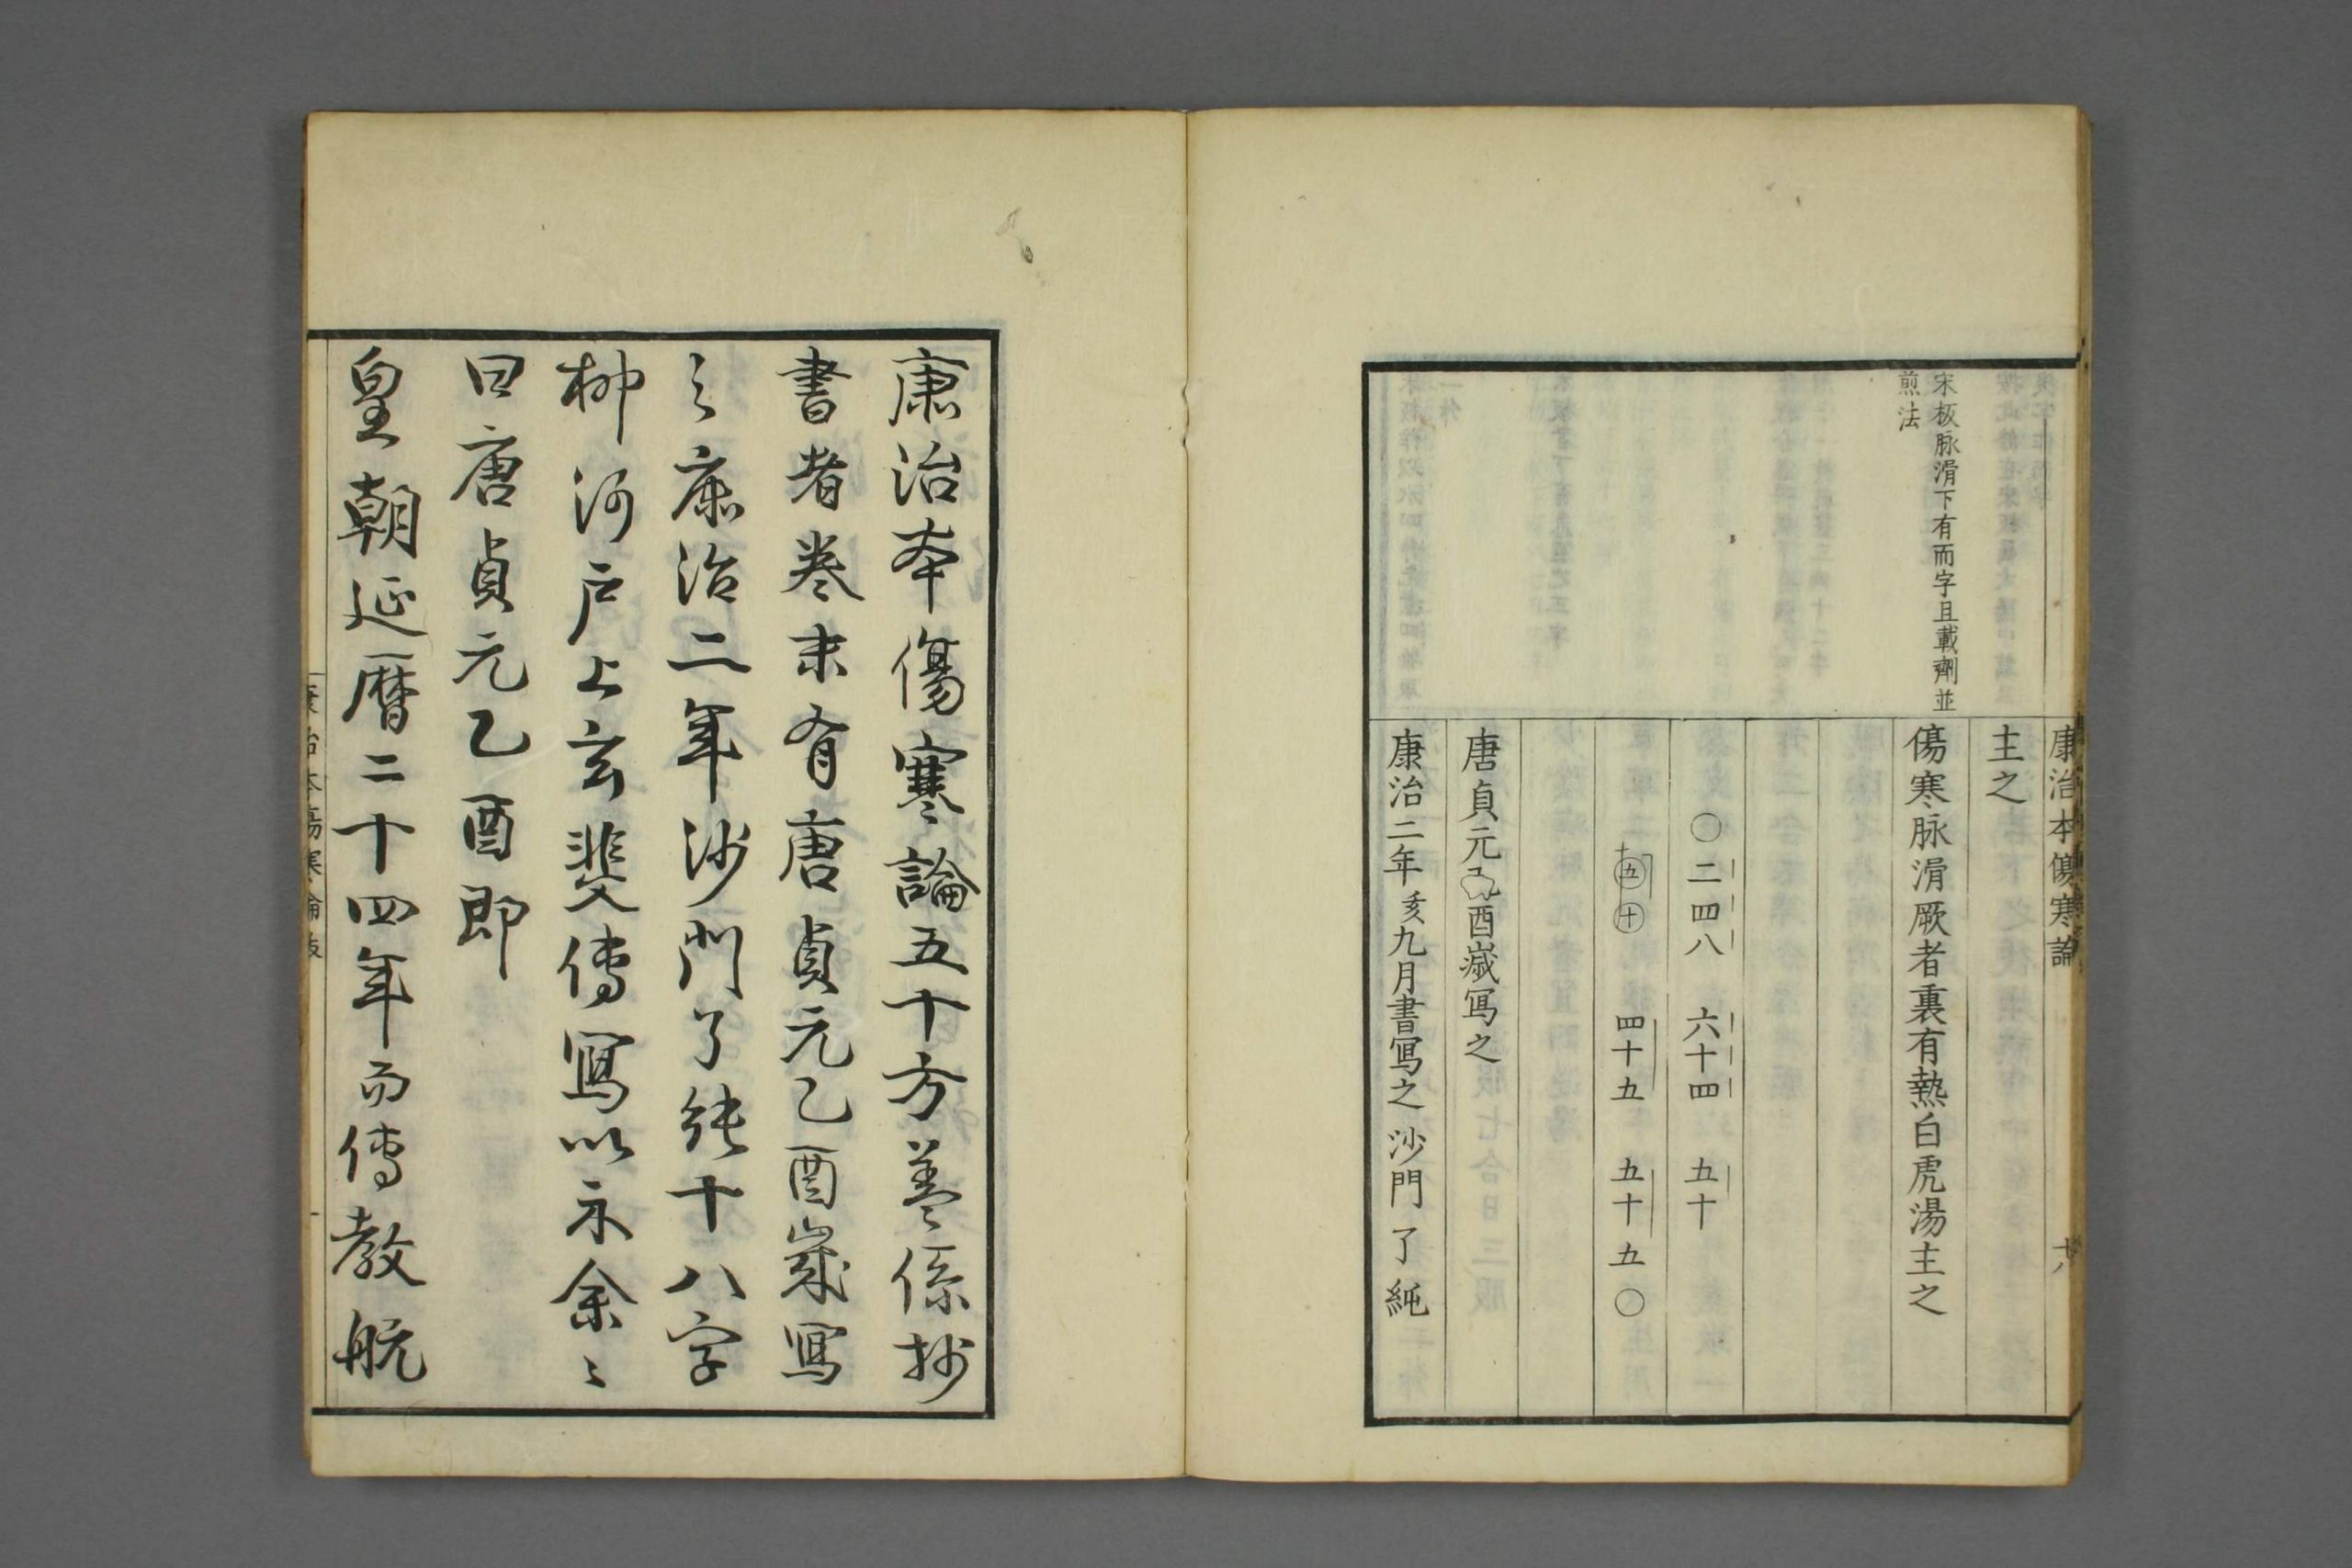 康治本傷寒論
十八
主之
宋板脉滑下有而字且載劑並
煎法
傷寒脉滑厥者裏有熱白虎湯主之
〇二四八　六十四　五十
十五十　四十五　五十五〇
唐貞元乙酉嵗写之
康治二年亥九月書写之　沙門了純
康治本傷寒論五十方蓋係抄
書者卷末有唐貞元乙酉歲寫
之康治二年沙門了純十八字
柳河戸上玄斐傳寫以示余〻
曰唐貞元乙酉即
皇朝延曆二十四年而傳教航
康治本傷寒論跋
一